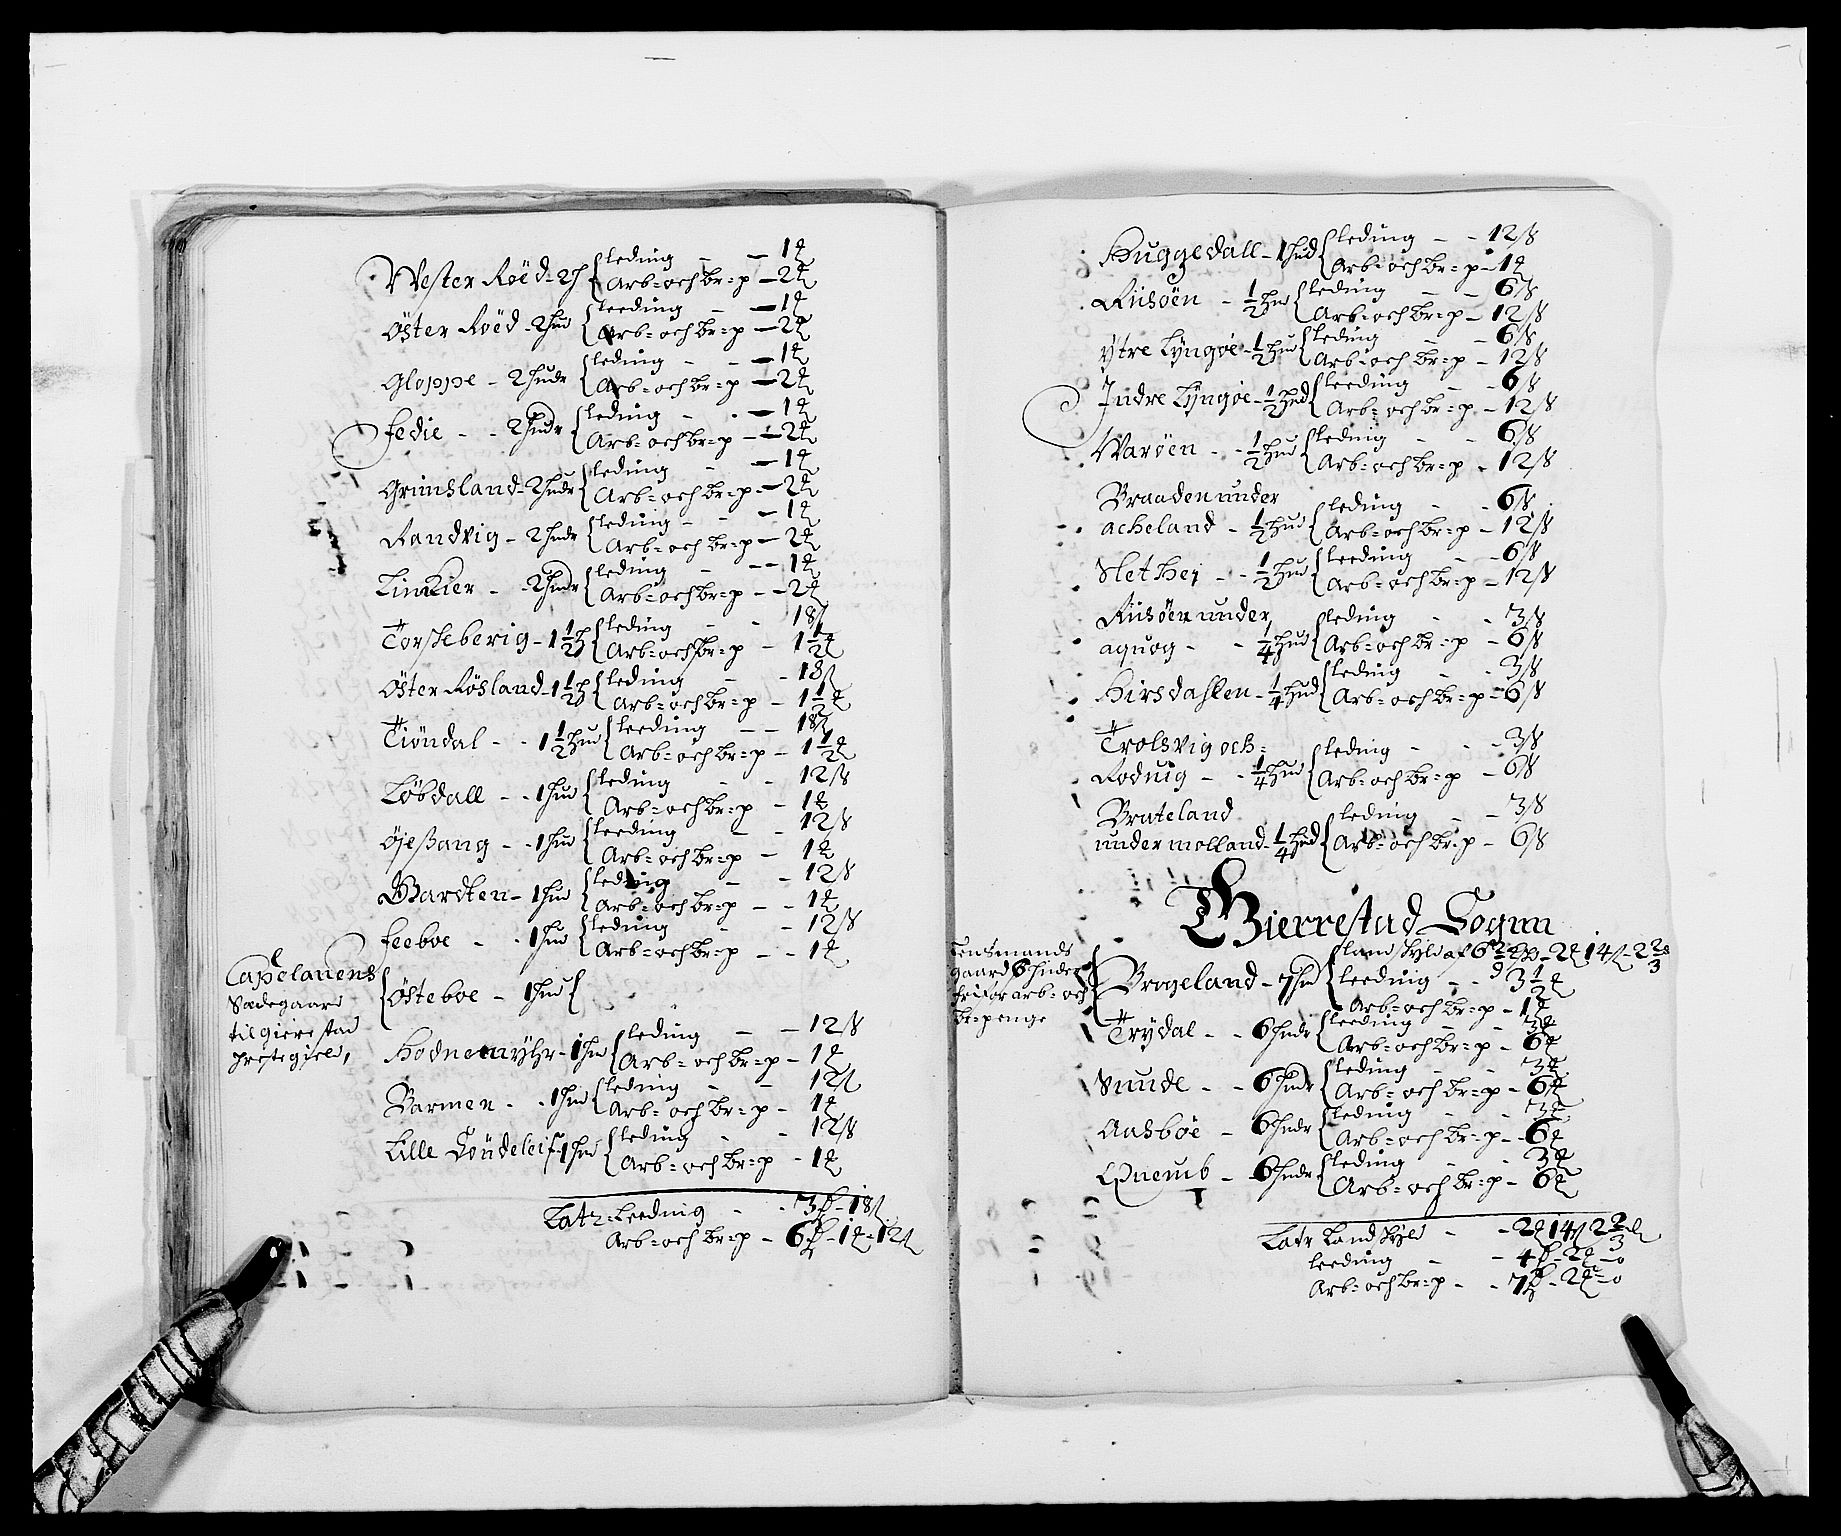 Wester Röed - 2 h { leding - - 1 ₰
Arb= och br=p - 2 ₰
Öster Röed - 2 hud { leeding - - 1 ₰
Arb= och br=p - 2 ₰
Gloppe - 2 hudr { leding - - 1 ₰
Arb= och br=p - 2 ₰
Fedie - - 2 hudr { leding - - 1 ₰
Arb= och br=p - 2 ₰
Grimsland - 2 hudr { leding - - 1 ₰
Arb= och br=p - 2 ₰
Randvig - 2 hudr { leding - - 1 ₰
Arb= och br=p - 2 ₰
Linkier - - 2 hudr { leding - - 1 ₰
Arb= och br=p - 2 ₰
Torskeberig - 1 1/2 h { leding - - 18 ß
Arb= och br=p - 1 1/2 ₰
Öster Rösland - 1 1/2 h { leding - - 18 ß
Arb= och br=p - 1 1/2 ₰
Tiöndal - - 1 1/2 hud { leeding - - 18 ß
Arb= och br=p - 1 1/2 ₰
Löbdall - - 1 hud { leding - - 12 ß
Arb= och br=p - 1 ₰
Øjeßang - - 1 hud { leeding - - 12 ß
Arb= och br=p - 1 ₰
Bardten - 1 hud { leding - - 12 ß
Arb= och br=p - - 1 ₰
Feeboe - - 1 hud { leding - - 12 ß
Arb= och br=p - - 1 ₰
Capelanens
Sædegaard
til gierestad
prestegield,
Östeboe - 1 hud {
Hodnemyhr - 1 hud { leding - - 12 ß
Arb= och br=p - 1 ₰
Barmen - - 1 hud { leding - - 12 ß
Arb= och br=p - 1 ₰
Lille Söndeleif - 1 hud { leding - - 12 ß
Arb= och br=p - 1 ₰
Latr: Leeding - - 3 f - 18 ß
Arb= och br=p - 6 f - 1 ₰ - 12 ß
Huggedall - 1 hud { leding - - 12 ß
Arb= och br=p - 1 ₰
Riisöen - 1/2 hud { leding - - 6 ß
Arb= och br=p - 12 ß
Ytre Lyngöe - 1/2 hud { leding - - 6 ß
Arb= och br=p - 12 ß
Indre Lyngöe - 1/2 hud { leeding - - 6 ß
Arb= och br=p - 12 ß
Waröen - - 1/2 hud { leding - - 6 ß
Arb= och br=p - 12 ß
Braaden under
acheland - 1/2 hud { leding - - 6 ß
Arb= och br=p - 12 ß
Slethei - - 1/2 hud { leeding - - 6 ß
Arb= och br=p - 12 ß
Riisöen under
aquog - - 1/4 hud { leding - - 3 ß
Arb= och br=p - 6 ß
Hirsdahlen - 1/4 hud { leding - - 3 ß
Arb= och br=p - 6 ß
Trolsvig och=
Rodvig - - 1/4 hud { leding - - 3 ß
Arb= och br=p - 6 ß
Brateland
under molland - 1/4 hud { leding - - 3 ß
Arb= och br=p - 6 ß
Gierrestad Sognn
Lensmands
gaard 6 huder
fri for arb= och
br=penge
Brogeland - 7 hud { landskyld af 6 2/3 - 2 ₰ 14 ß - 2 2/3 ₰
leeding - - 3 1/2 ₰
Arb= och br=p - 1 ₰
Trydal - - 6 hudr { leeding - - 3 ₰
Arb= och br=p - 6 ₰
Sunde - - 6 hudr { leding - - 3 ₰
Arb= och br=p - 6 ₰
Aasböe - 6 hudr { leding - - 3 ₰
Arb= och br=p - 6 ₰
Queuib - 6 hudr { leding - - 3 ₰
Arb= och br=p - 6 ₰
Latr Landskyld - - 2 ₰ 14 ß 2 2/3 ₰
leeding - - 4 f - 2 ₰ - 0
Arb= och br=p - - 7 f - 2 ₰ - 0